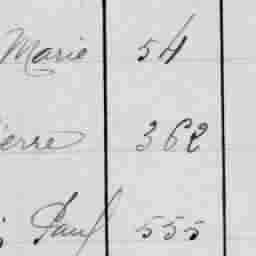 Marie 54
ierre 362
Paul 555